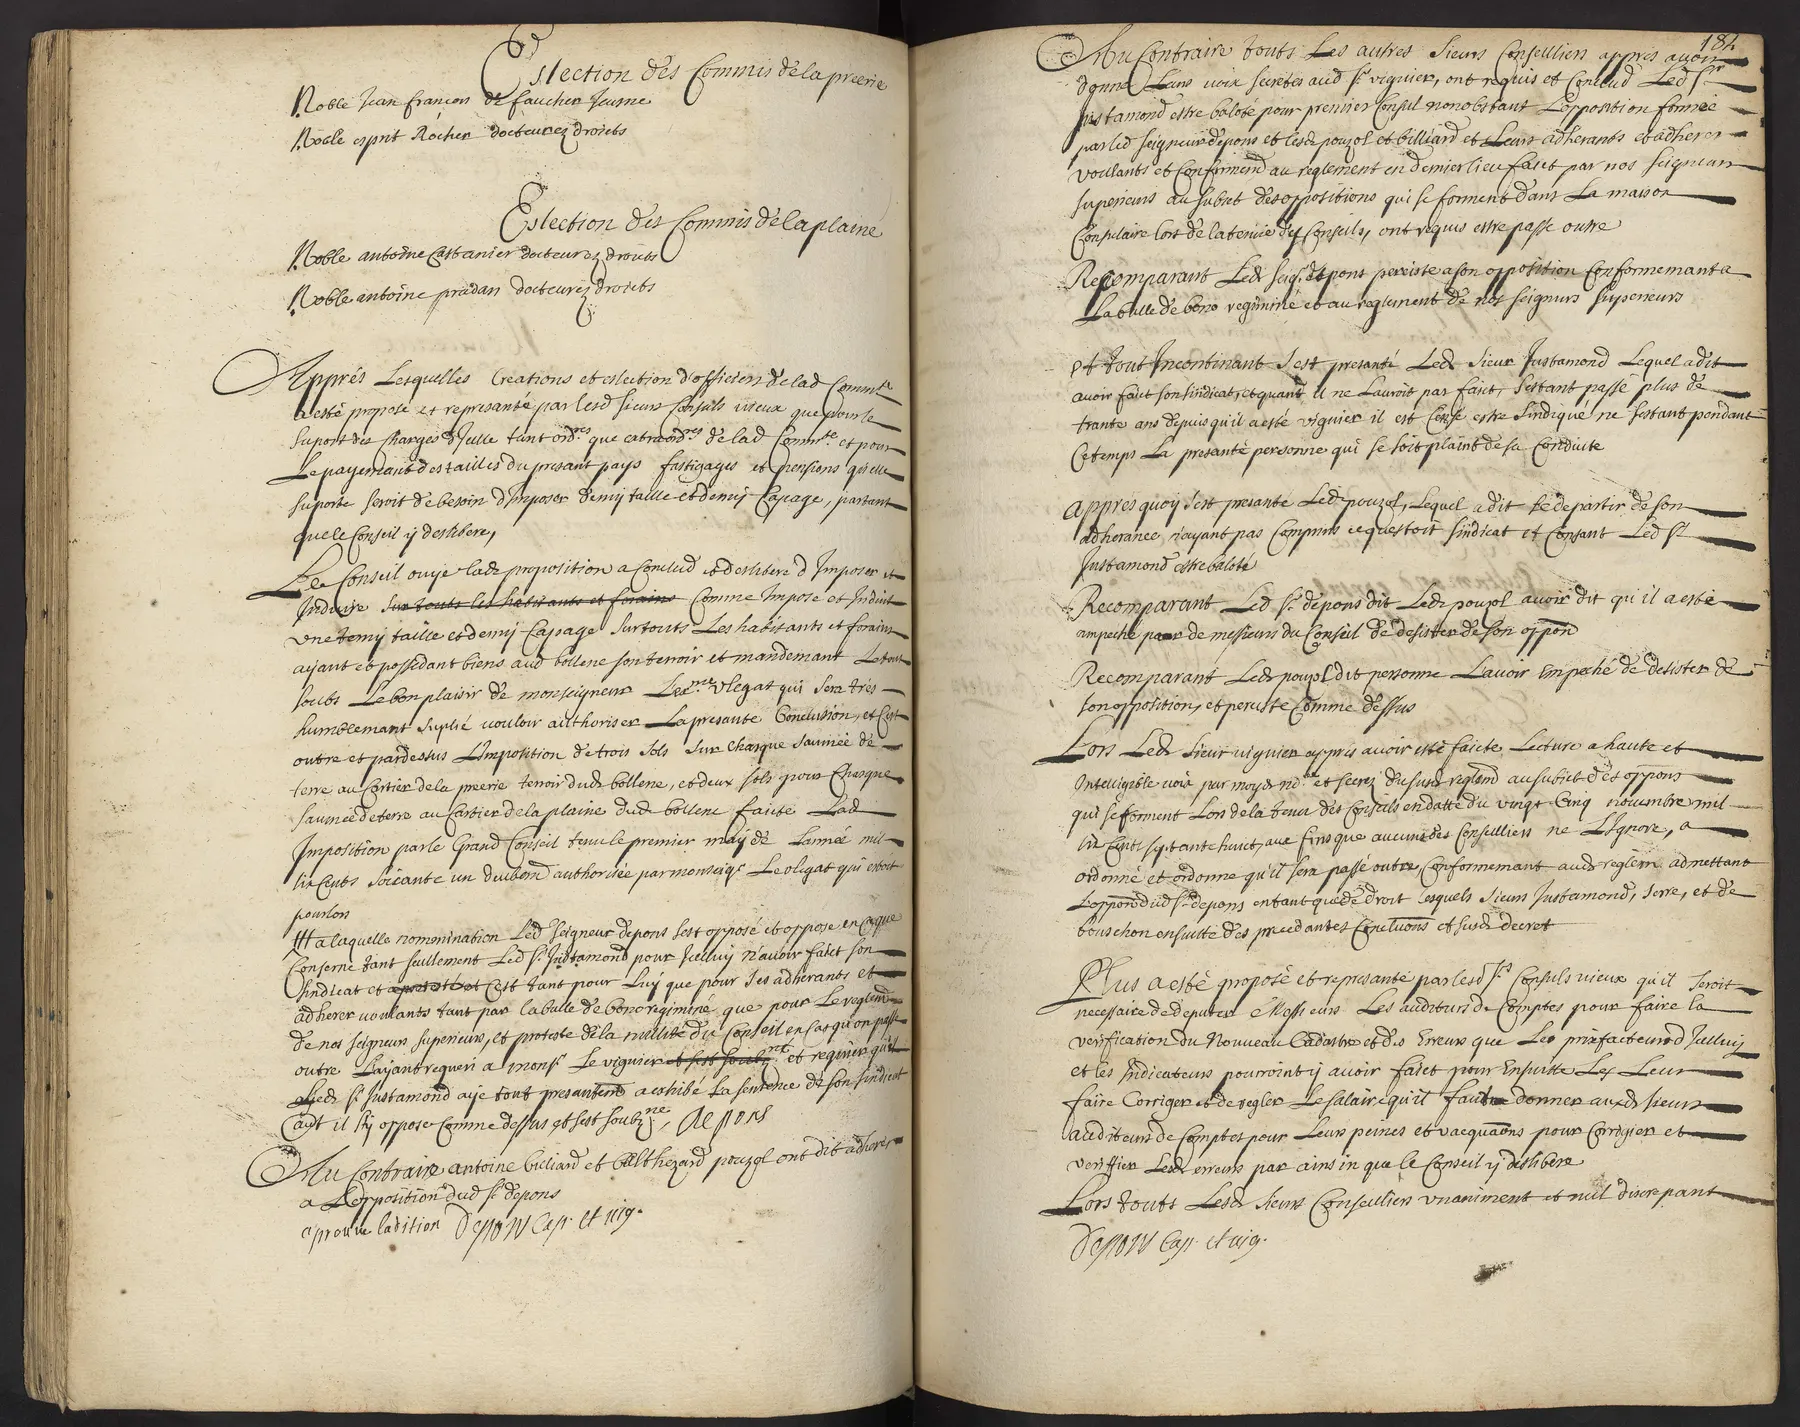 Eslection des Commis de la preerie
Noble Jean françois de faucher Jeusne
Noble esprit Rocher docteur ez droits
Eslection des Commis de la plaine
Noble antoine Castanier docteur ez droits
Noble antoine pradan docteur ez droits
Apprés Lesquelles Creations et eslection d'officiers de lad Commté
a esté proposé et representé par lesd sieurs Consuls vieux que pour le
suport des charges d'Icelle tant ordres que extraordres de lad Commté et pour
Le payemant des tailles du presant pays fastigages et pensions qu'elle
suporte seroit de besoin d'Imposer demy taille et demy Capage, partant
que le Conseil y deslibere,
Le Conseil ouye lade proposition a Conclud et deslibere d'Imposer et
Induire sur touts les habitants et forains Comme Impose et Induit
une demy taille et demy Capage sur touts Les habitants et forains
ayant et possedant biens aud bollene son terroir et mandemant Le tout
soubs Le bon plaisir de monseigneur L'exme vlegat qui sera tres
humblemant suplié vouloir authoriser La presante Conclusion, et C'est
outre et pardessus L'Imposition de trois sols sur chasque saumée de
terre au Cartier de la preerie terroir dud bollene, et deux sols pour Chasque
saumée de terre au Cartier de la plaine dud bollene faicte Lad
Imposition par le Grand Conseil tenu le premier may de Lannée mil
six Cents soixante un deubem authorisée par monseigr Le vlegat qui estoit
pour lors
a laquelle nomination Led seigneur depons s'est opposé et oppose en Ce que
Conserne tant seullement Led sr Justamond pour Icelluy n'avoir faict son
sindicat et a protesté et C'est tant pour Luy que pour ses adherants et
adherer voulants tant par la bulle de bono regiminé que pour Le reglemt
de nos seigneurs superieurs, et proteste de la nullité du Conseil en Cas qu'on passe
outre L'ayant requeri a monsr Le viguier et s'est soubzné et requier qu'il
Led sr Justamond aye tout presantemt a exhibé La sentence de son sindicat
aut il s'y oppose Comme dessus et s'est soubzné, De pons
Au Contraire antoine biliard et Balthezard pouzol ont dit adherer
a L'opposition dud sr depons
aprouve ladition Depons Cap. et vig.
182
Au Contraire touts Les autres sieurs Conselliers apprés avoir
donné Leurs voix secretes aud sr viguier, ont requis et Conclud Led sr
Justamond estre baloté pour premier Consul nonobstant L'opposition formée
par led seigneur depons et lesd pouzol et billiard et Leurs adherants et adherer
voulants et Conformemd au reglement en dernier lieu faict par nos seigneurs
superieurs au subiet des oppositions qui se forment dans La maison
Consulaire lors de la tenue des Conseils, ont requis estre passe outre
Recomparant Led seigr depons persiste a son opposition Conformemant a
La bulle de bono regiminé et au reglement de nos seigneurs superieurs
et tout Incontinant s'est presanté Led sieur Justamond Lequel a dit
avoir faict son sindicat, et quand il ne Lauroit pas faict, s'estant passé plus de
trante ans depuis qu'il a esté viguier il est Censé estre sindiqué ne s'estant pendant
Ce temps La presanté personne qui se soit plaint de sa Conduite
appres quoy s'est presanté Led pouzol, Lequel a dit se departir de son
adherance, n'ayant pas Comprins ce questoit sindicat et Consant Led sr
Justamond estre baloté
Recomparant Led sr depons dit Led pouzol avoir dit qu'il a esté
ampeché par de messieurs du Conseil de desister de son oppon
Recomparant Led pouzol dit personne L'avoir Empeché de desister de
son opposition, et persiste Comme dessus
Lors Led sieur viguier appres avoir esté faicte Lecture a haute et
Intelligible voix par moy et secrez du susd reglemd au subiet des oppons
qui se forment Lors de la tenue des Conseils en datte du vingt Cinq novembre mil
six Cents septante huict, aux fins que aucuns des Conselliers ne L'Ignore, a
ordonné et ordonne qu'il sera passé outre, Conformemant aud reglem admettant
L'oppon dud sr depons en tant que de droit Lesquels sieurs Justamond, serre, et de
bouschon ensuitte des precedantes Conclusions et susd decret
Plus a esté proposé et represanté par lesd srs Consuls vieux qu'il seroit
necessaire de deputer Messieurs Les auditeurs de Comptes pour faire la
verification du Nouveau Cadastre et des Erreurs que Les prixfacteurs d'Icelluy
et les Indicateurs pourroint y avoir faict pour Ensuitte Les Leur
faire Corriger et de regler Le salaire qu'il faudra donner auxd sieurs
auditeurs de Comptes pour Leurs peines et vacquaons pour Corrigier et
veriffier Lesd erreurs par ainsin que le Conseil y deslibere
Lors touts Lesd sieurs Conselliers unaniment et nul discrepant
Depons Cap. et vig.